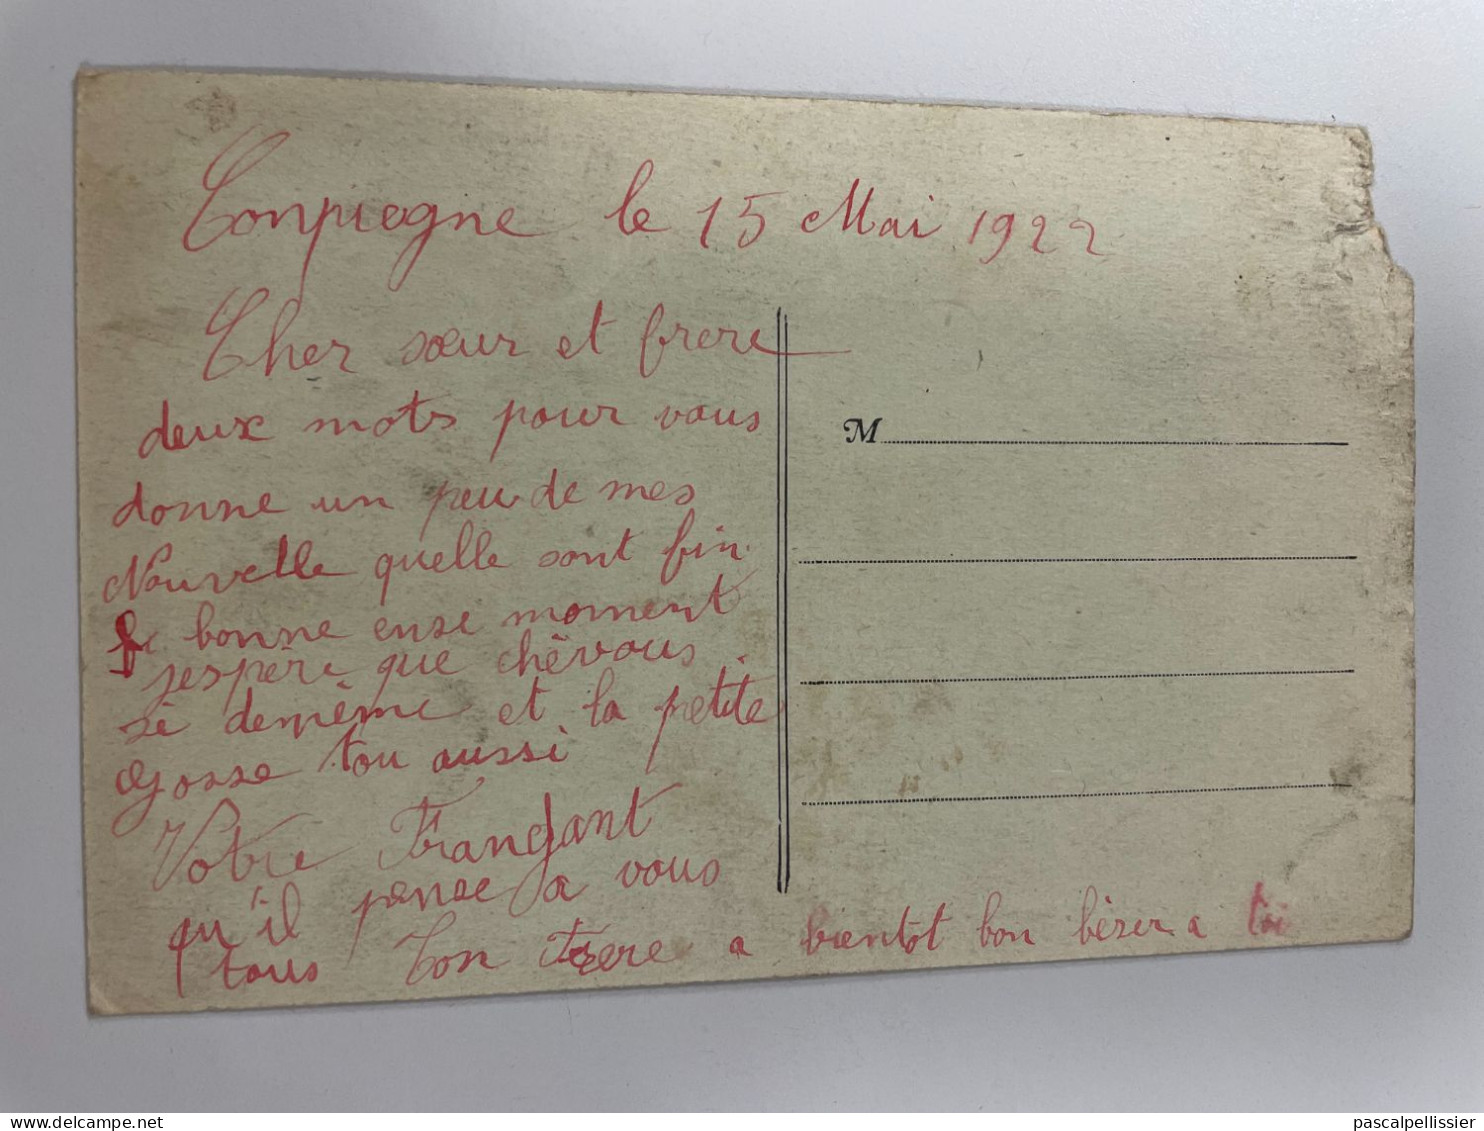 Conpiegne le 15 Mai 1922
Cher sœur et frere
deux mots pour vous
donne un peu de mes
Nouvelle quelle sont fin
bonne ense moment
jespère que chèvous
sè demème et la petite
Gosse tou aussi
Votre Frangant
qu'il pense a vous
tous Ton Frere a bientot bon bèser a toi
M
pascalpellissier